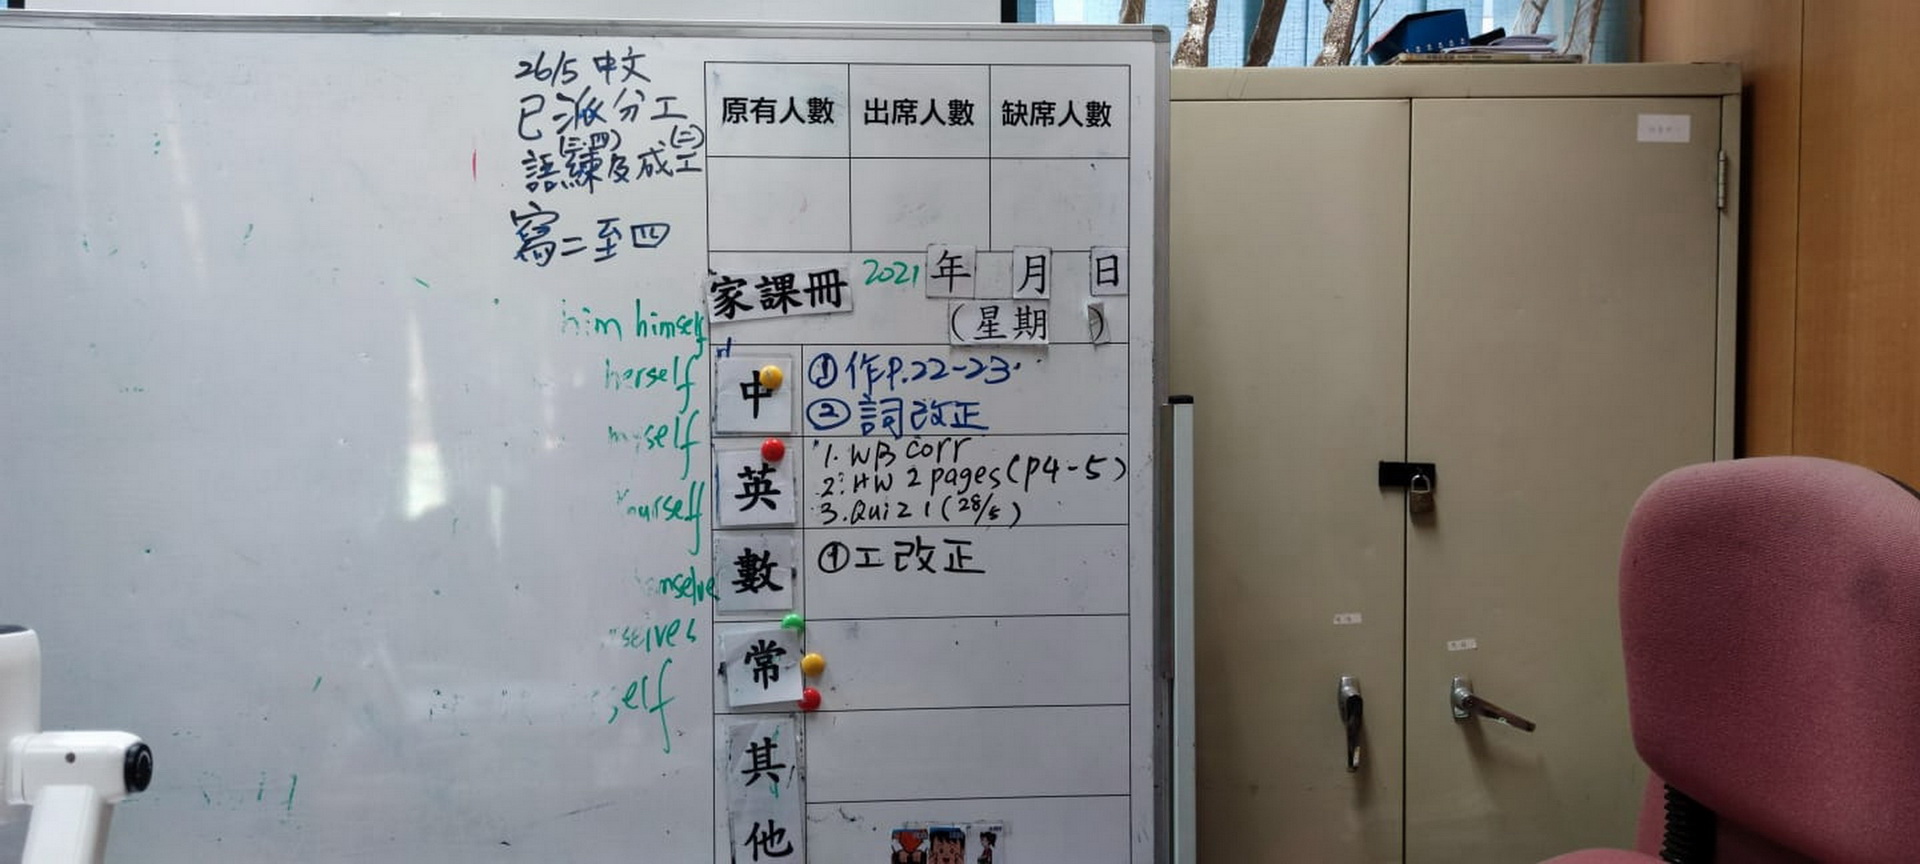 26/5 中文
已派分工
(三、四) (二)
語練及成工
寫二至四
him himself
herself
myself
原有人數 出席人數 缺席人數
家課冊 2021年 月 日
(星期 )
中 ①作P.22-23
②詞改正
英 1. WB corr
2. HW 2 pages (P4-5)
3. Quiz 1 (28/5)
數 ①工改正
常
其他